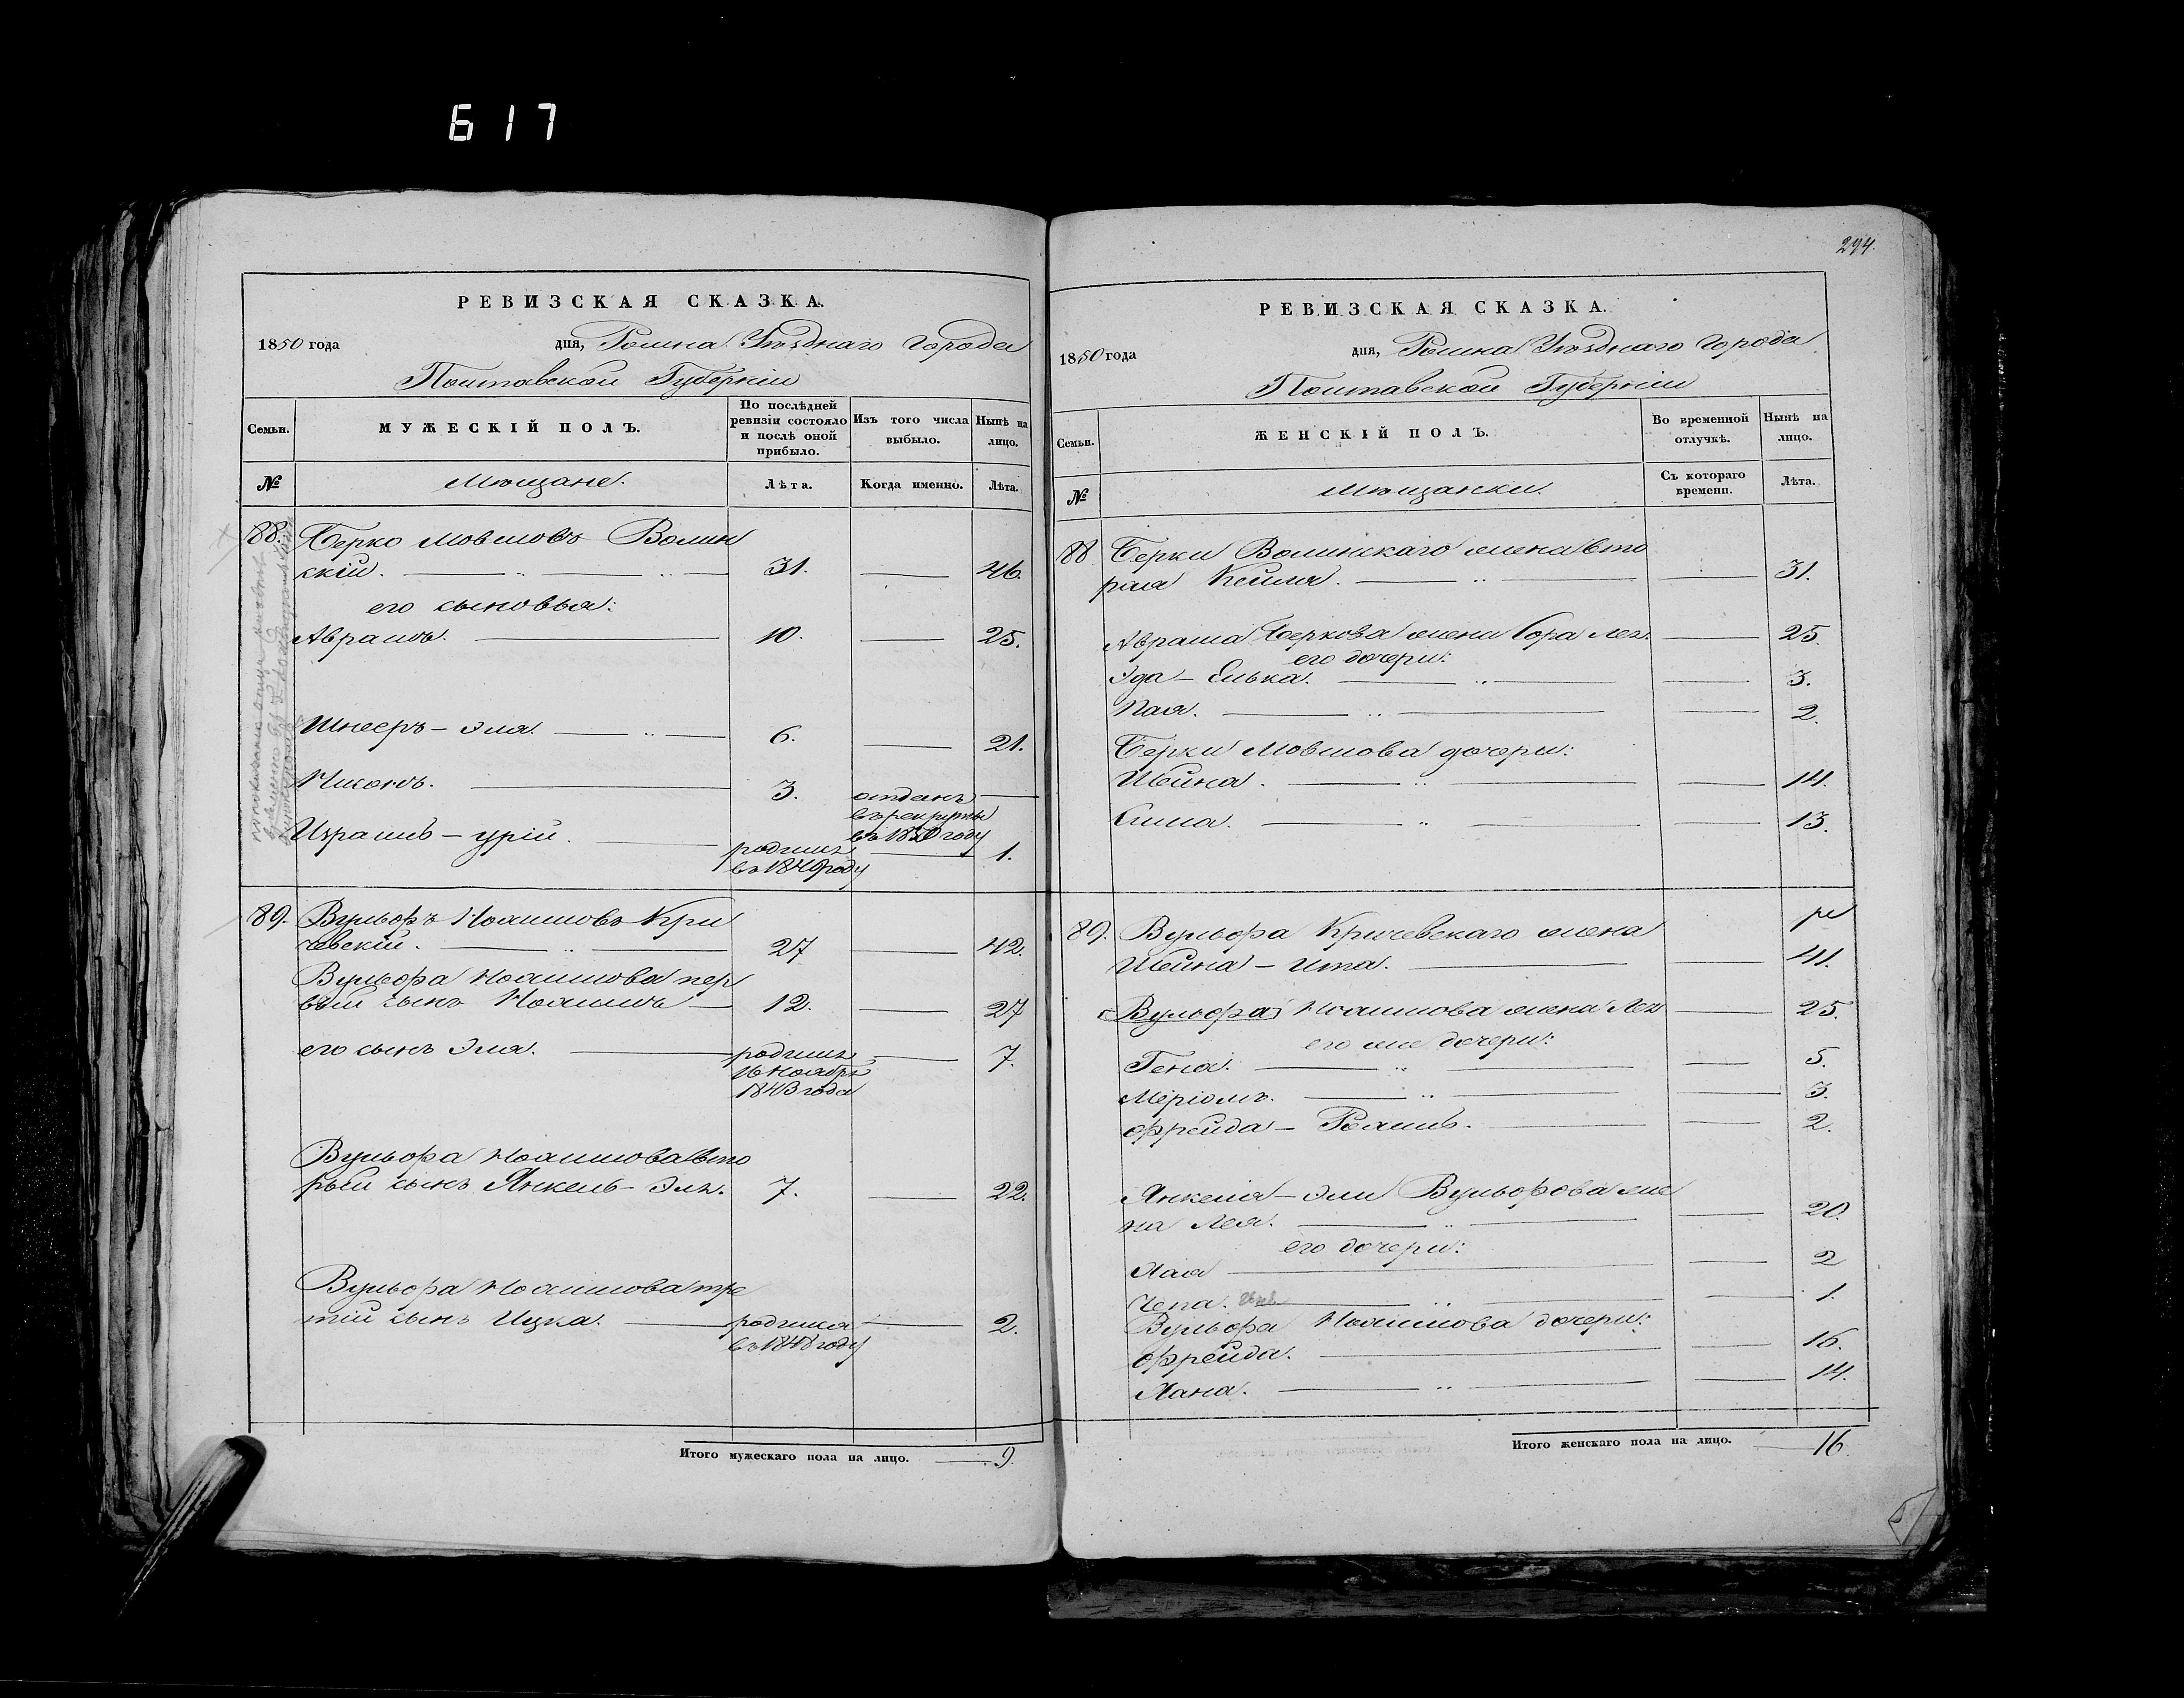 617
РЕВИЗСКАЯ СКАЗКА.
1850 года дня, Ромна Уѣзднаго Города
Полтавской Губерніи
Семьи.
МУЖЕСКІЙ ПОЛЪ.
По послѣдней ревизіи состояло и послѣ оной прибыло.
Изъ того числа выбыло.
Нынѣ на лицо.
№
Мѣщане.
Лѣта.
Когда именно.
Лѣта.
88. Берко Мовшовъ Волин
скій. 31. 46.
его сыновья:
Абрамъ. 10. 25.
Шнееръ - Эля. 6. 21.
Нисонъ. 3. отданъ
въ рекруты
въ 1850 году
Израиль - Урій. родился 1.
въ 1849 году
89. Вульфъ Ноаимовъ Кри
чевскій. 27 42.
Вульфа Ноаимова пер
вый сынъ Ноаимъ 12. 27
его сынъ Эля. родился 7.
16 Ноября
1843 года
Вульфа Ноаимова вто
рый сынъ Янкель - Эля. 7. 22.
Вульфа Ноаимова тре
тій сынъ Ицка. родился 2.
въ 1848 году
Итого мужескаго пола на лицо. 9.
294.
РЕВИЗСКАЯ СКАЗКА.
1850 года дня, Ромна Уѣзднаго Города
Полтавской Губерніи
Семьи.
ЖЕНСКІЙ ПОЛЪ.
Во временной отлучкѣ.
Нынѣ на лицо.
№
Мѣщанки.
Съ котораго времени.
Лѣта.
88 Берки Волинскаго жена вто
рая Кейля. 31.
Абрама Беркова жена Сора Лея 25.
его дочери:
Эда - Елька. 3.
Хая. 2.
Берки Мовшова дочери:
Шейна. 14.
Сима. 13.
89. Вульфа Кричевскаго жена
Шейна - Ита. 41.
Вульфа Ноаимова жена Лея 25.
его же дочери:
Гена. 5.
Меріомъ. 3.
Фрейда - Рохиль. 2.
Янкеля - Эли Вульфова же
на Лея. 20.
его дочери:
Хая 2
Чепа. 1.
Вульфа Ноаимова дочери:
Фрейда. 16.
Хана. 14.
Итого женскаго пола на лицо. 16.